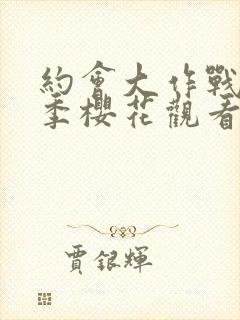 約會大作戰
季櫻花觀看
賈銀輝